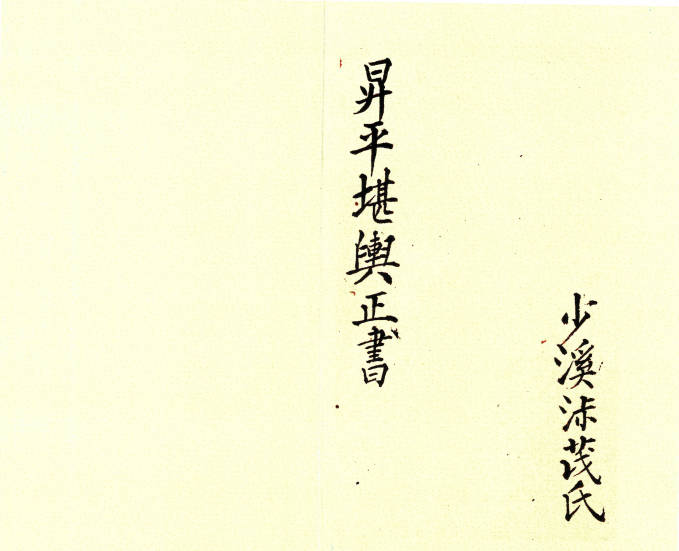 少溪茂氏
昇平堪輿正書